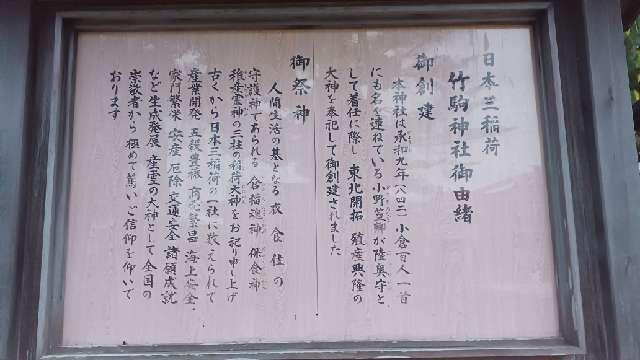 日本三稲荷
竹駒神社御由緒
御創建
本神社は承和九年(八四二)小倉百人一首
にも名を連ねている小野篁卿が陸奥守と
して着任に際し 東北開拓 殖産興隆の
大神を奉祀して御創建されました
御祭神
人間生活の基となる衣 食 住 の
守護神であられる 倉稲魂神 保食神
稚産霊神の三社の稲荷大神をお祀り申し上げ
古くから日本三稲荷の一社に数えられて
産業開発 五穀豊穣 商売繁昌 海上安全
家門繁栄 安産 厄除 交通安全 諸願成就
など生成発展 産霊の大神として全国の
崇敬者から極めて篤いご信仰を仰いで
おります